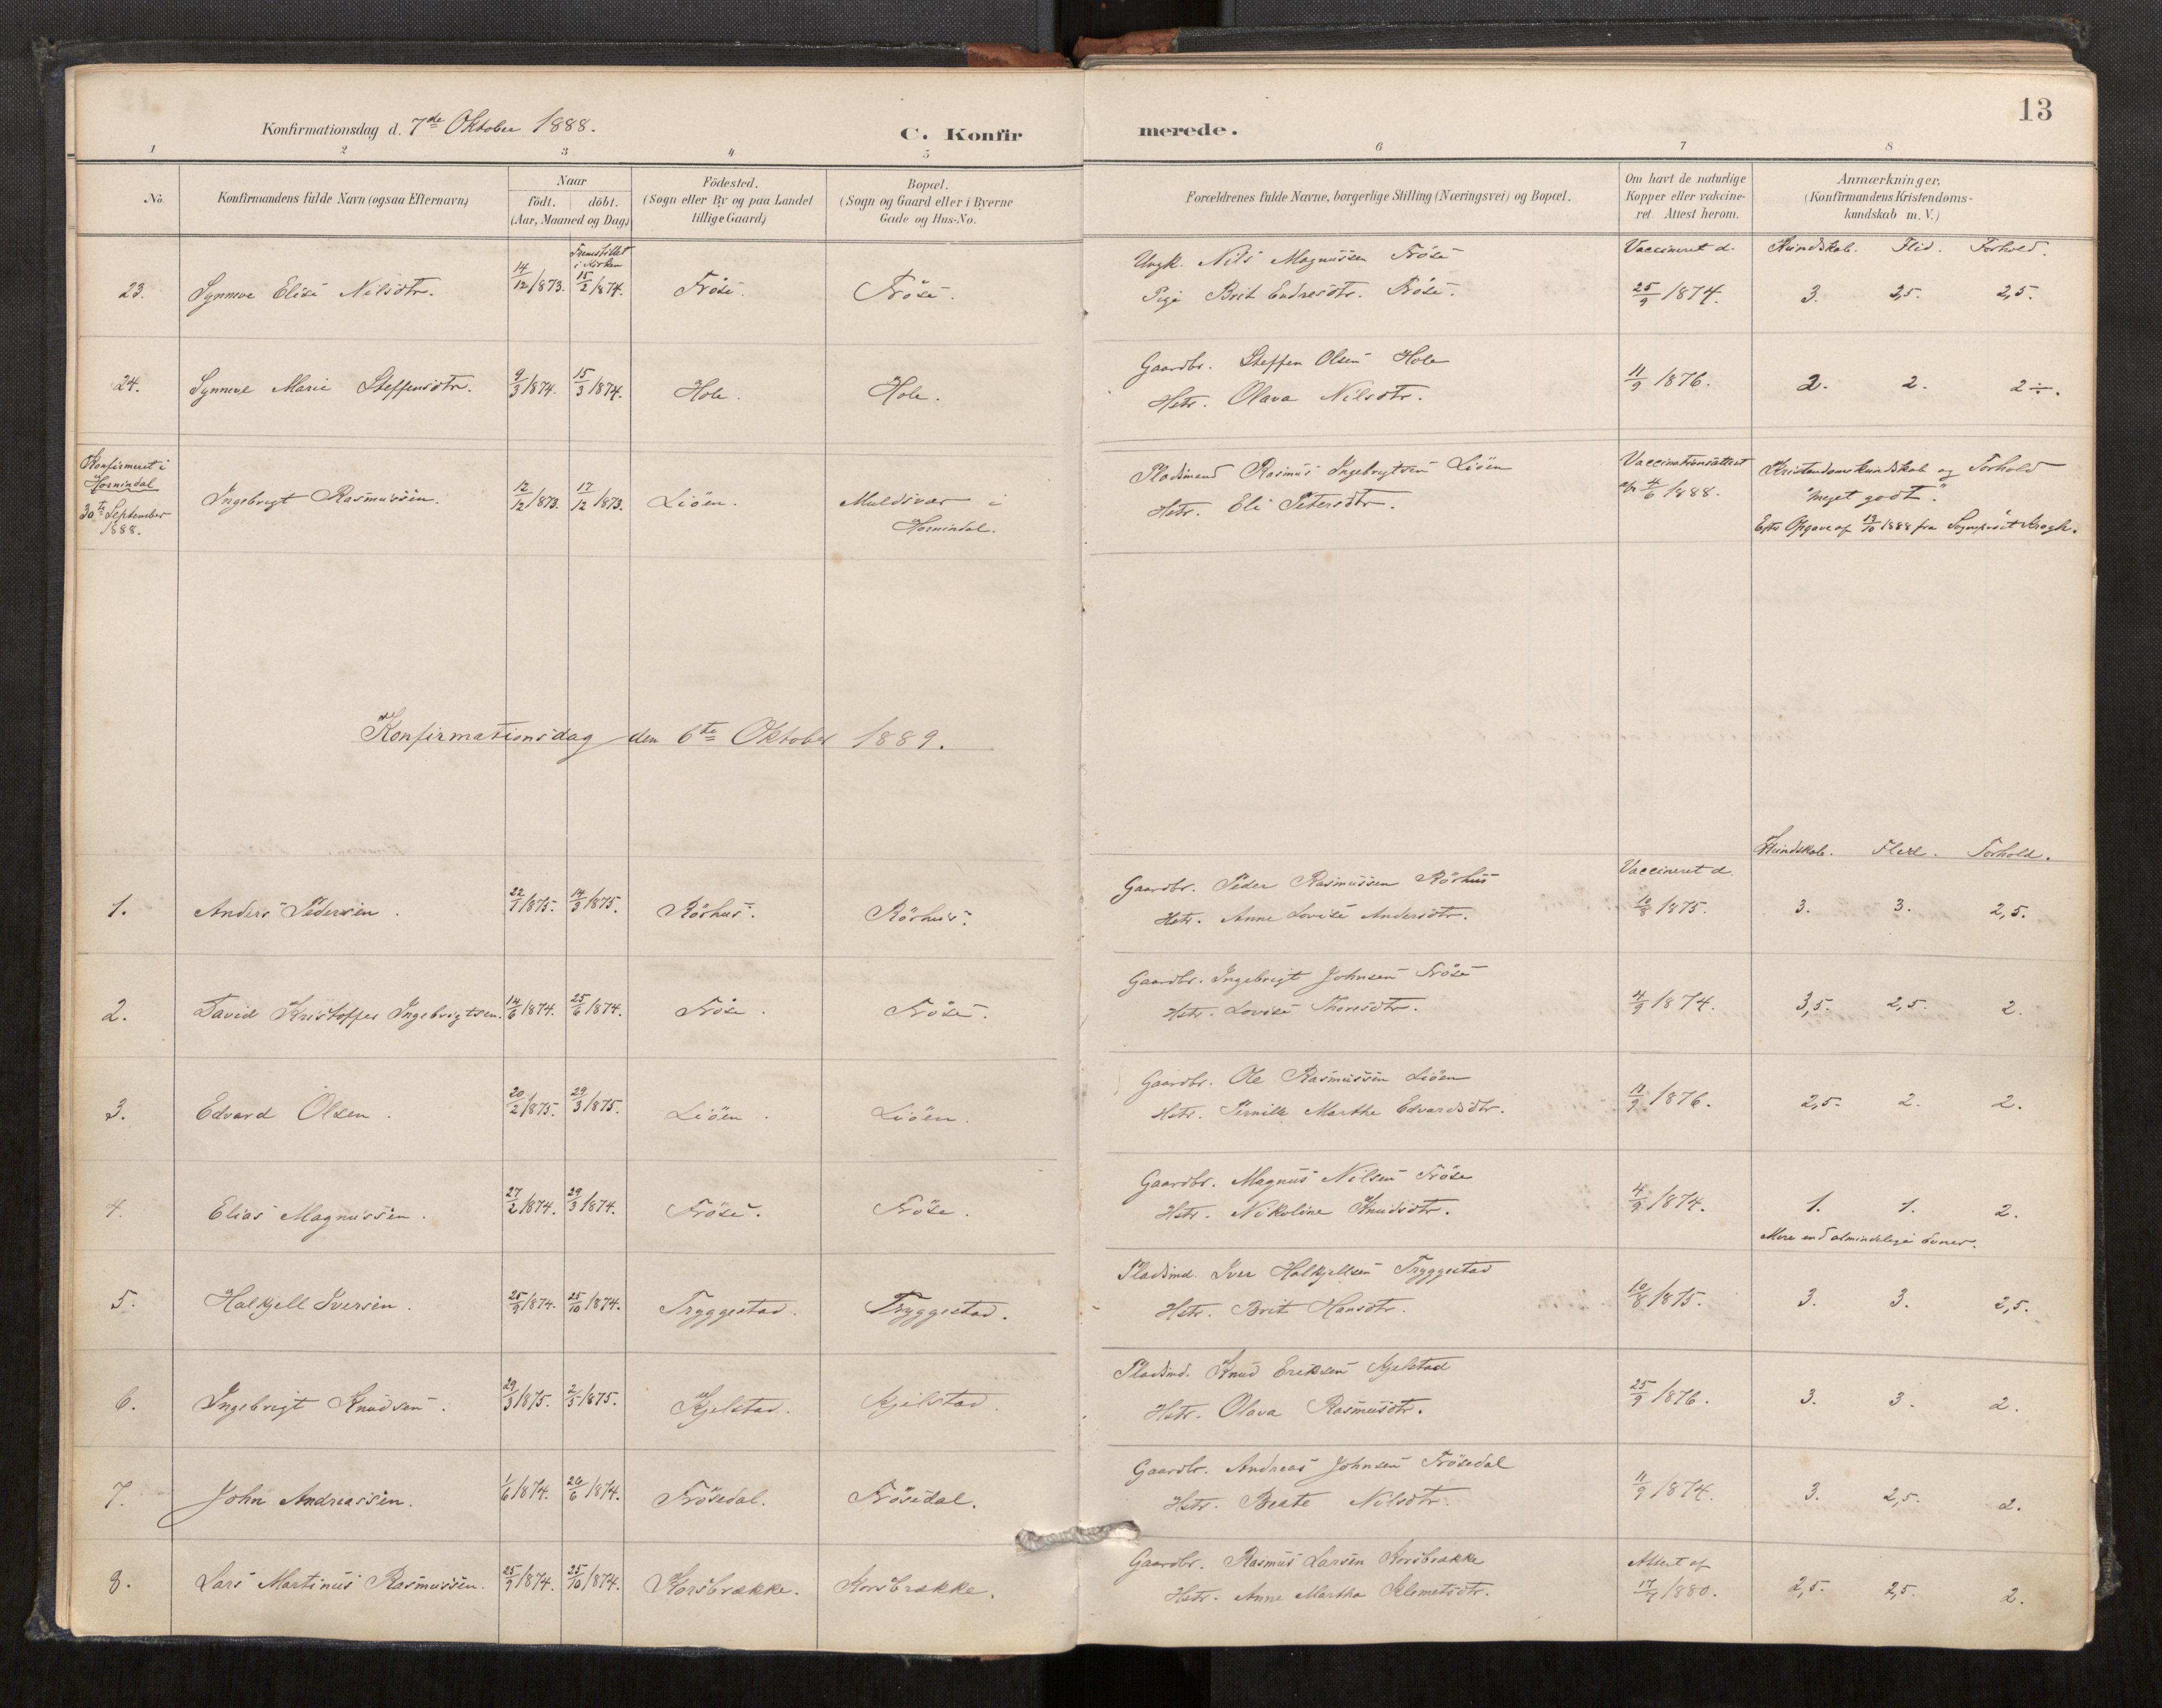 13
Konfirmationsdag d. 7de Oktober 1888.
C. Konfirmerede.
1 2 3 4 5 6 7 8
No.
Konfirmandens fulde Navn (ogsaa Efternavn)
Naar
födt. döbt.
(Aar, Maaned og Dag)
Födested.
(Sogn eller By og paa Landet
tillige Gaard)
Bopæl.
(Sogn og Gaard eller i Byerne
Gade og Hus-No.
Forældrenes fulde Navne, borgerlige Stilling (Næringsvei) og Bopæl.
Om havt de naturlige
Kopper eller vakcine-
ret. Attest herom.
Anmærkninger,
(Konfirmandens Kristendoms-
kundskab m. V.)
Fremstillet
i Kirken
Vaccineret d. Kundskab. Flid. Forhold.
Ungk. Nils Magnussen Fröse
23. Synneve Elise Nilsdtr. 14/12 1873. 15/2 1874. Fröse. Fröse. Pige Brit Endresdtr. Fröse. 25/9 1874. 3. 2,5. 2,5.
Gaardbr. Steffen Olsen Hole
24. Synneve Marie Steffensdtr. 9/3 1874. 15/3 1874. Hole. Hole. Hstr. Olava Nilsdtr. 11/9 1876. 2. 2. 2÷.
Konfirmeret i
Hornindal
30te September
1888.
Ingebrigt Rasmussen. 12/12 1873. 17/12 1873. Liöen. Muldsvor i
Hornindal.
Pladsmand Rasmus Ingebrigtsen Liöen
Hstr. Eli Petersdtr.
Vaccinationsattest
af 4/6 1888.
Kristendomskundskab og Forhold
"meget godt."
Efter Opgave af 19/10 1888 fra Sogneprest Krogh.
Konfirmationsdag den 6te Oktober 1889.
Kundskab. Flid. Forhold.
Vaccineret d.
Gaardbr. Peder Rasmussen Rörhus
1. Anders Pedersen. 22/1 1875. 14/3 1875. Rörhus. Rörhus. Hstr. Anne Lovise Andersdtr. 10/8 1875. 3. 3. 2,5.
Gaardbr. Ingebrigt Johnsen Fröse
2. David Kristoffer Ingebrigtsen. 14/6 1874. 25/6 1874. Fröse. Fröse. Hstr. Lovise Thoresdtr. 4/9 1874. 3,5. 2,5. 2.
Gaardbr. Ole Rasmussen Liöen
3. Edvard Olsen. 20/2 1875. 29/3 1875. Liöen. Liöen. Hstr. Pernille Marthe Edvardsdtr. 11/9 1876. 2,5. 2. 2.
Gaardbr. Magnus Nilsen Fröse
4. Elias Magnussen. 27/2 1874. 29/3 1874. Fröse. Fröse. Hstr. Nikoline Knudsdtr. 4/9 1874. 1. 1. 2.
Mere end almindelige Evner.
Pladsmd. Iver Halkjellsen Tryggestad
5. Halkjell Iversen. 25/9 1874. 25/10 1874. Tryggestad. Tryggestad. Hstr. Brit Hansdtr. 10/8 1875. 3. 3. 2,5.
Pladsmd. Knud Eriksen Kjelstad
6. Ingebrigt Knudsen. 29/3 1875. 2/5 1875. Kjelstad. Kjelstad. Hstr. Olava Rasmusdtr. 25/9 1876. 3. 3. 2.
Gaardbr. Andreas Johnsen Frösedal
7. John Andreassen. 1/6 1874. 24/6 1874. Frösedal. Frösedal. Hstr. Beate Nilsdtr. 11/9 1874. 3. 2,5. 2.
Gaardbr. Rasmus Larsen Korsbrække
Attest af
8. Lars Martinus Rasmussen. 25/9 1874. 25/10 1874. Korsbrække. Korsbrække. Hstr. Anne Martha Klemetsdtr. 17/7 1880. 2,5. 2,5. 2.